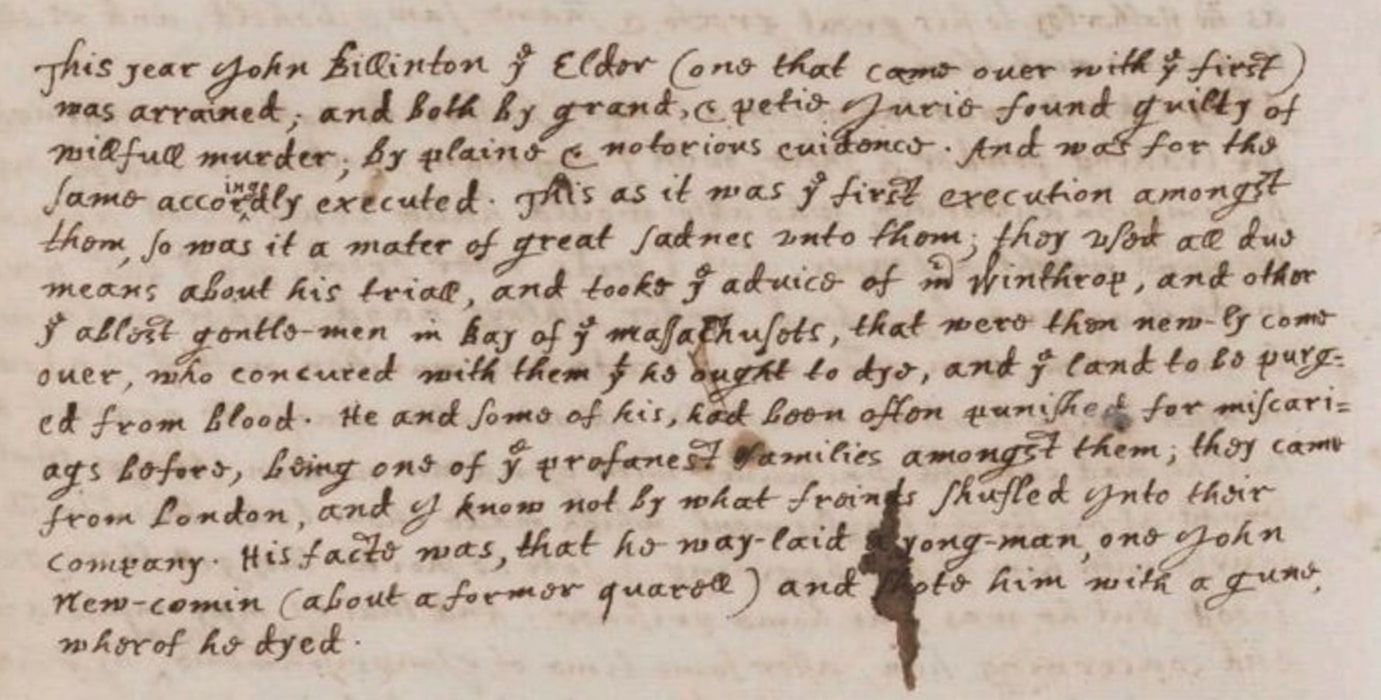 This year John Billinton yͤ Elder (one that came over with yͤ first)
was arrained; and both by grand, & petie Jurie found guilty of
willfull murder; by plaine & notorious euidence. And was for the
same accordingly executed. This as it was yͤ first execution amongst
them, so was it a mater of great sadnes vnto them; they vsed all due
means about his triall, and tooke yͤ advice of mͬ Winthrop, and other
yͤ ablest gentle-men in Bay of yͤ massachusets, that were then new-ly come
ouer, who concured with them yͭ he ought to dye, and yͤ land to be purg=
ed from blood. He and some of his, had been often punished for miscari=
ags before, being one of yͤ profanest families amongst them; they came
from London, and I know not by what freinds shufled Into their
company. His facte was, that he way-laid a yong-man, one John
New-comin (about a former quarell) and shote him with a gune,
wherof he dyed.